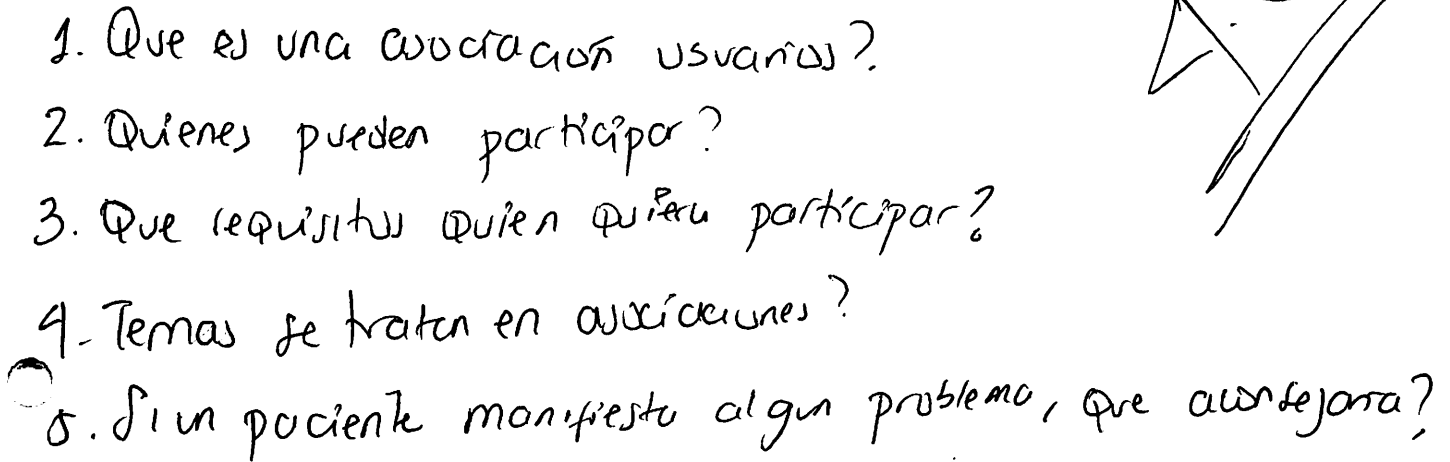 1. Que es una asociación usuarios?
2. Quienes pueden participar?
3. Que requisitos quien quiera participar?
4- Temas se tratan en asociaciones?
5. Si un paciente manifiesta algun problema, que aconsejaria?